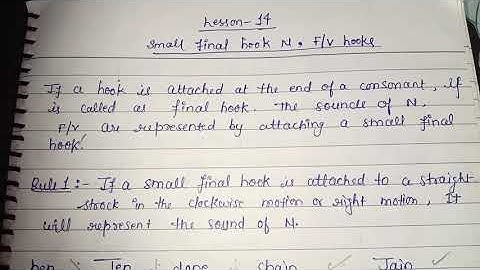 Lesson-14
Small final hook N. F/V hooks
If a hook is attached at the end of a consonant, if
is called as final hook. The sounds of N.
F/V are represented by attaching a small final
hook.
Rule 1:- If a small final hook is attached to a straight
strock in the clockwise motion or right motion, It
will represent the sound of N.
Ten chain Jain